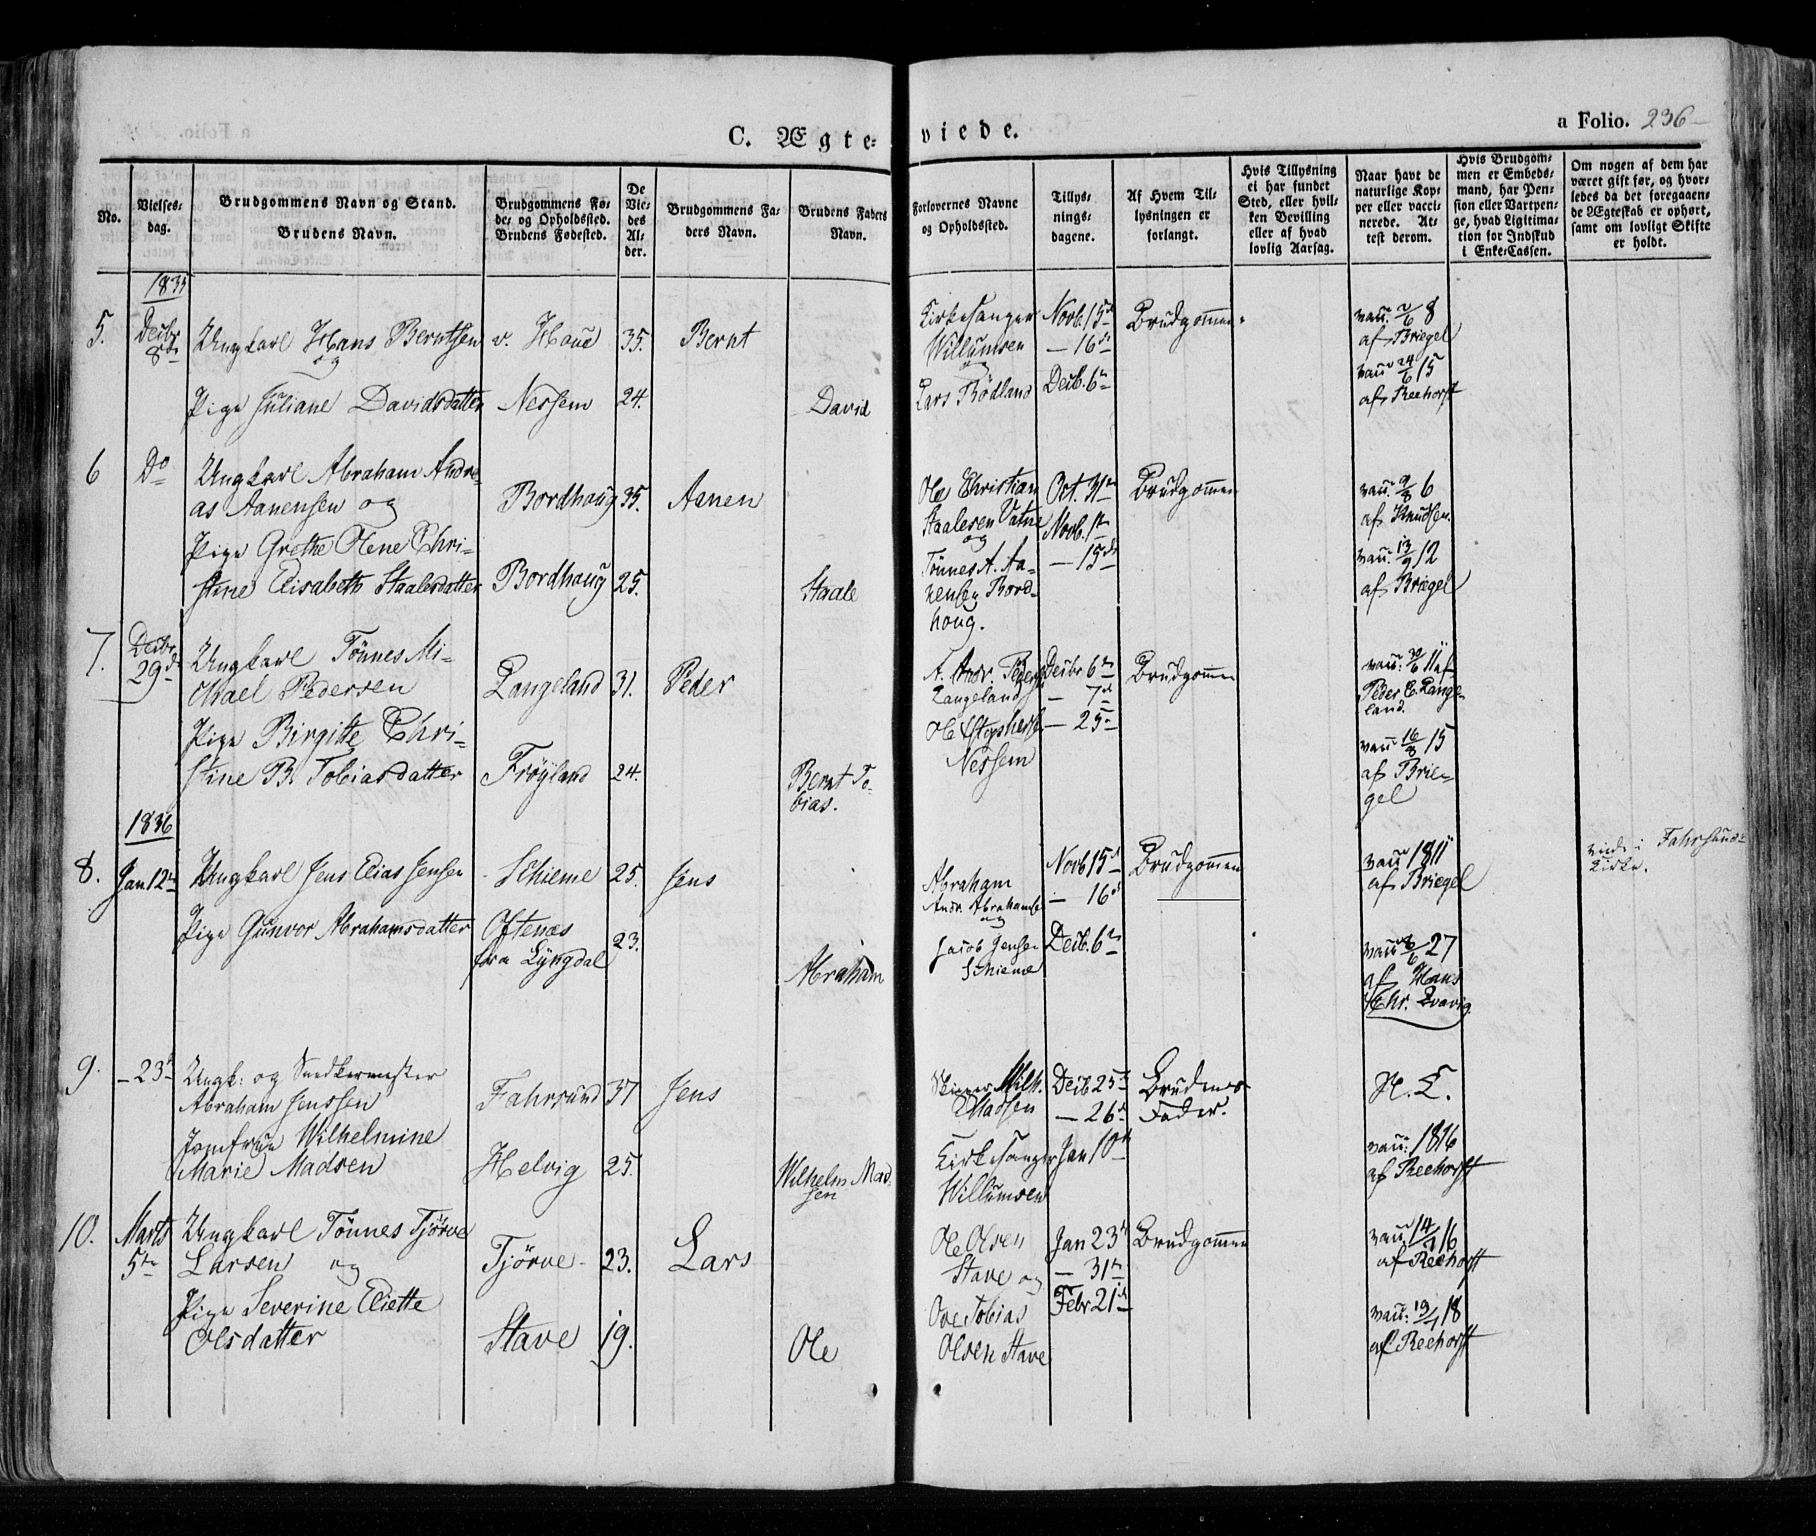 C. Ægte-
viede.
a Folio. 236
No.
Vielses-
dag.
Brudgommens Navn og Stand.
Brudens Navn.
Brudgommens Fø-
de- og Opholdssted.
Brudens Fødested.
De
Vie-
des
Al-
der.
Brudgommens Fa-
ders Navn.
Brudens Faders
Navn.
Forlovernes Navne
og Opholdssted.
Tillys-
nings-
dagene.
Af Hvem Til-
lysningen er
forlangt.
Hvis Tillysning
ei har fundet
Sted, eller hvil-
ken Bevilling
eller af hvad
lovlig Aarsag.
Naar havt de
naturlige Kop-
per eller vacci-
nerede. At-
test derom.
Hvis Brudgom-
men er Embeds-
mand, har Pen-
sion eller Vartpen-
ge, hvad Ligitima-
tion for Indskud
i Enke-Cassen.
Om nogen af dem har
været gift før, og hvor-
ledes da det foregaaen-
de Ægteskab er ophørt,
samt om lovligt Skifte
er holdt.
1835
5. Decbr 8de
Ungkarl Hans Berntsen
og
Pige Juliane Davidsdatter
v. Haue 35. Bernt
Nessem 24. David
Kirkesanger
Willumsen
og
Lars Rødland
Novb. 15d
— 16de
Decb. 6te
Brudgommen
vacc. 2/6 8
af Briegel
vacc 24/6 15
af Reehorst
6 Do
Ungkarl Abraham Andre-
as Aanensen og
Pige Grethe Olene Chri-
stine Elisabeth Staalesdatter
Bordhaug 35. Aanen
Bordhaug 25. Staale
Ole Christian
Staalesen Vatne
og
Tönnes A. Aa-
nensen Bord-
houg.
Oct. 31te
Novb. 1te
— 15de
Brudgommen
vacc. 9/8 6
af Knudsen.
vacc: 13/9 12
af Briegel
7. Decbr 29de
Ungkarl Tönnes Mi-
chael Pedersen
Pige Birgitte Chri-
stine B. Tobiasdatter
Langeland 31. Peder
Fröyland 24.
Bernt To-
bias.
A. Andr. Peders
Langeland
Ole
Nessem
Decbr 6te
— 7de
— 25de
Brudgommen
vacc: 30/6 11 af
Peder C. Lange-
land.
vacc 16/8 15
af Brie-
gel
1836
8. Jan 12te
Ungkarl Jens Elias Jensen
Pige Gunvor Abrahamsdatter
Schieme 25. Jens
Oftenæs
fra Lyngdal 23.
Abraham
Abraham
Andr. Abrahams
og
Jacob Jensen
Schieme
Novb 15d
— 16d
Decb. 6te
Brudgommen
vacc 1811
af Briegel
vacc 8/6 27
af Hans
Chr. Qvavig
viede i Fahrsunds
Kirke.
9. — 23d
Ungk: og Snedkermester
Abraham Jenssen
Jomfrue Wilhelmine
Marie Madsen
Fahrsund 37 Jens
Helvig 25.
Wilhelm Mad-
sen
Skipper Wilh.
Madsen
Kirkesanger
Willumsen
Decb 25d
— 26d
Jan 10de
Brudens
Fader.
N. E.
vacc: 1816
af Reehorst
10. Marts 5te
Ungkarl Tönnes Tjørve
Larsen og
Pige Severine Eliette
Olsdatter
Tjörve 23. Lars
Stave 19. Ole
Ole Olsen
Stave og
Ove Tobias
Olsen Stave
Jan 23d
— 31te
Febr 21d
Brudgommen
vacc 14/7 16
af Reehorst
vacc: 19/7 18
af Reehorst